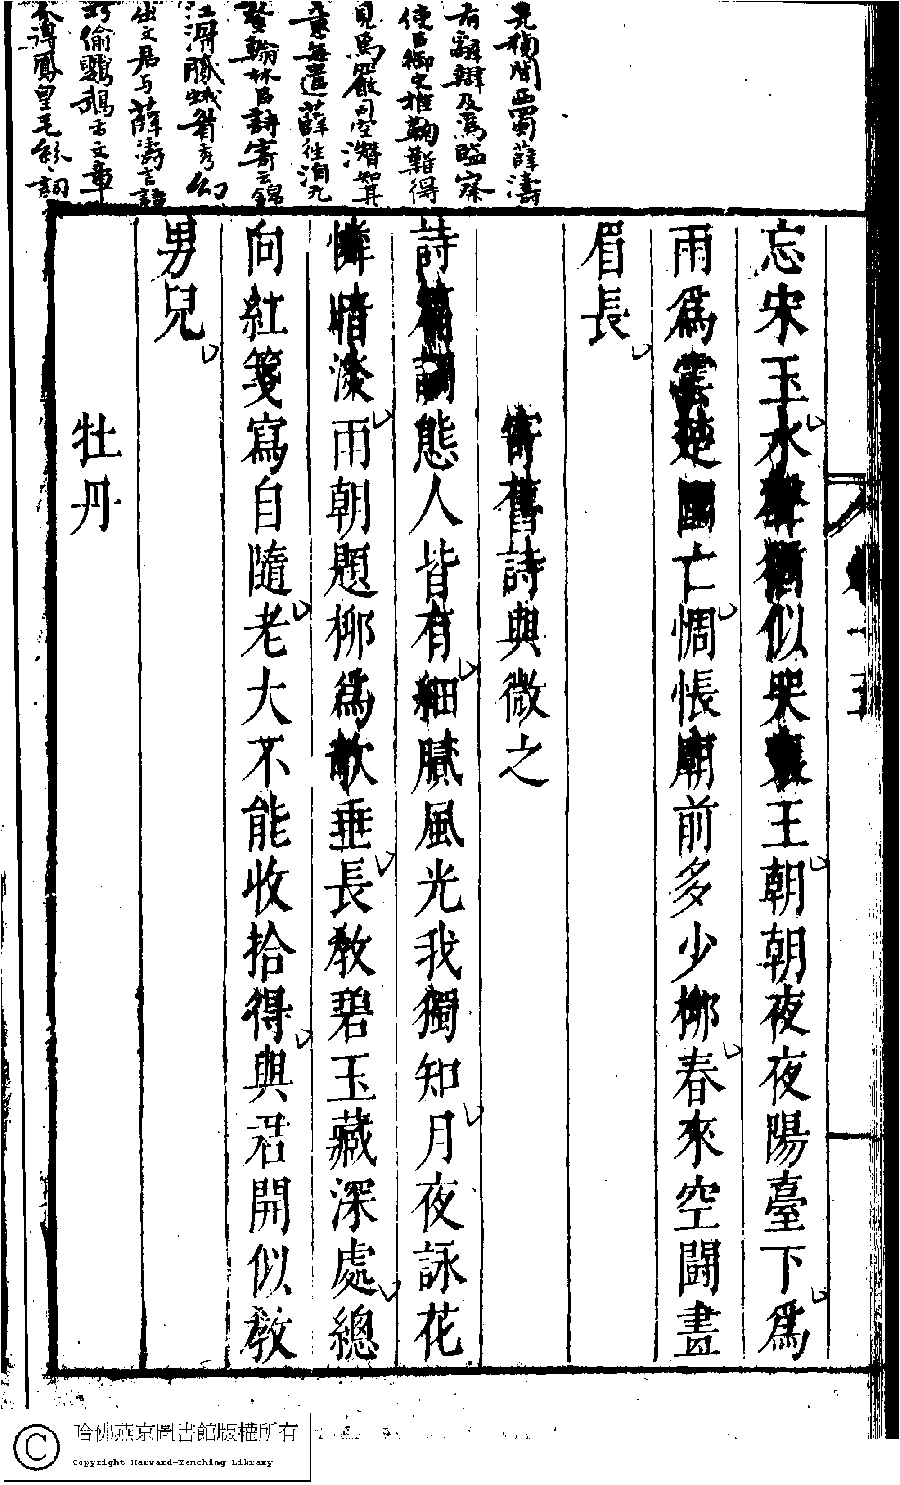 元稹聞西蜀薛濤
有辭辯及爲監察
使御史推鞫難得
見焉嚴司空潛知其
意每遣薛往洎元
登翰林以詩寄云錦
江滑膩蛾眉秀幻
出文君与薛濤言語
巧偷鸚鵡舌文章
得鳳皇毛紛紛詞
忘宋玉水聲猶似哭襄王朝朝夜夜陽臺下爲
雨爲雲楚國亡惆悵廟前多少柳春來空鬭畫
眉長
寄舊詩與微之
詩篇調態人皆有細膩風光我獨知月夜詠花
憐暗澹雨朝題柳爲欹垂長教碧玉藏深處總
向紅箋寫自隨老大不能收拾得與君開似教
男兒
牡丹
哈佛燕京圖書館版權所有
Copyright Harvard-Yenching Library